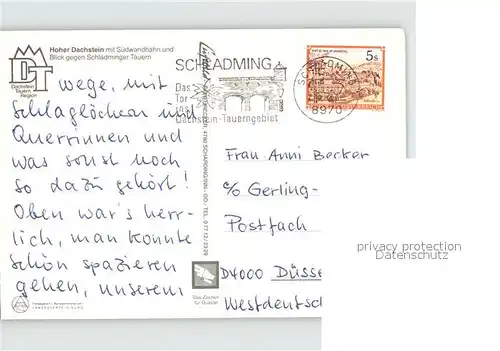 Hoher Dachstein mit Südwandbahn und
Blick gegen Schladminger Tauern
DT
Dachstein
Tauern
Region
wege, mit
Schlaglöchern und
Querrinnen und
was sonst noch
so dazu gehört!
Oben war's herr-
lich, man konnte
schön spazieren
gehen, unserem
SCHLADMING
Das
Tor
ins
Dachstein-Tauerngebiet
SCHLADMING
8970
5 S
4780 SCHÄRDING/INN
Das Zeichen
für Qualität
Frau Anni Becker
c/o Gerling-
Postfach
D4000 Düsse
Westdeutsch
privacy protection
Datenschutz